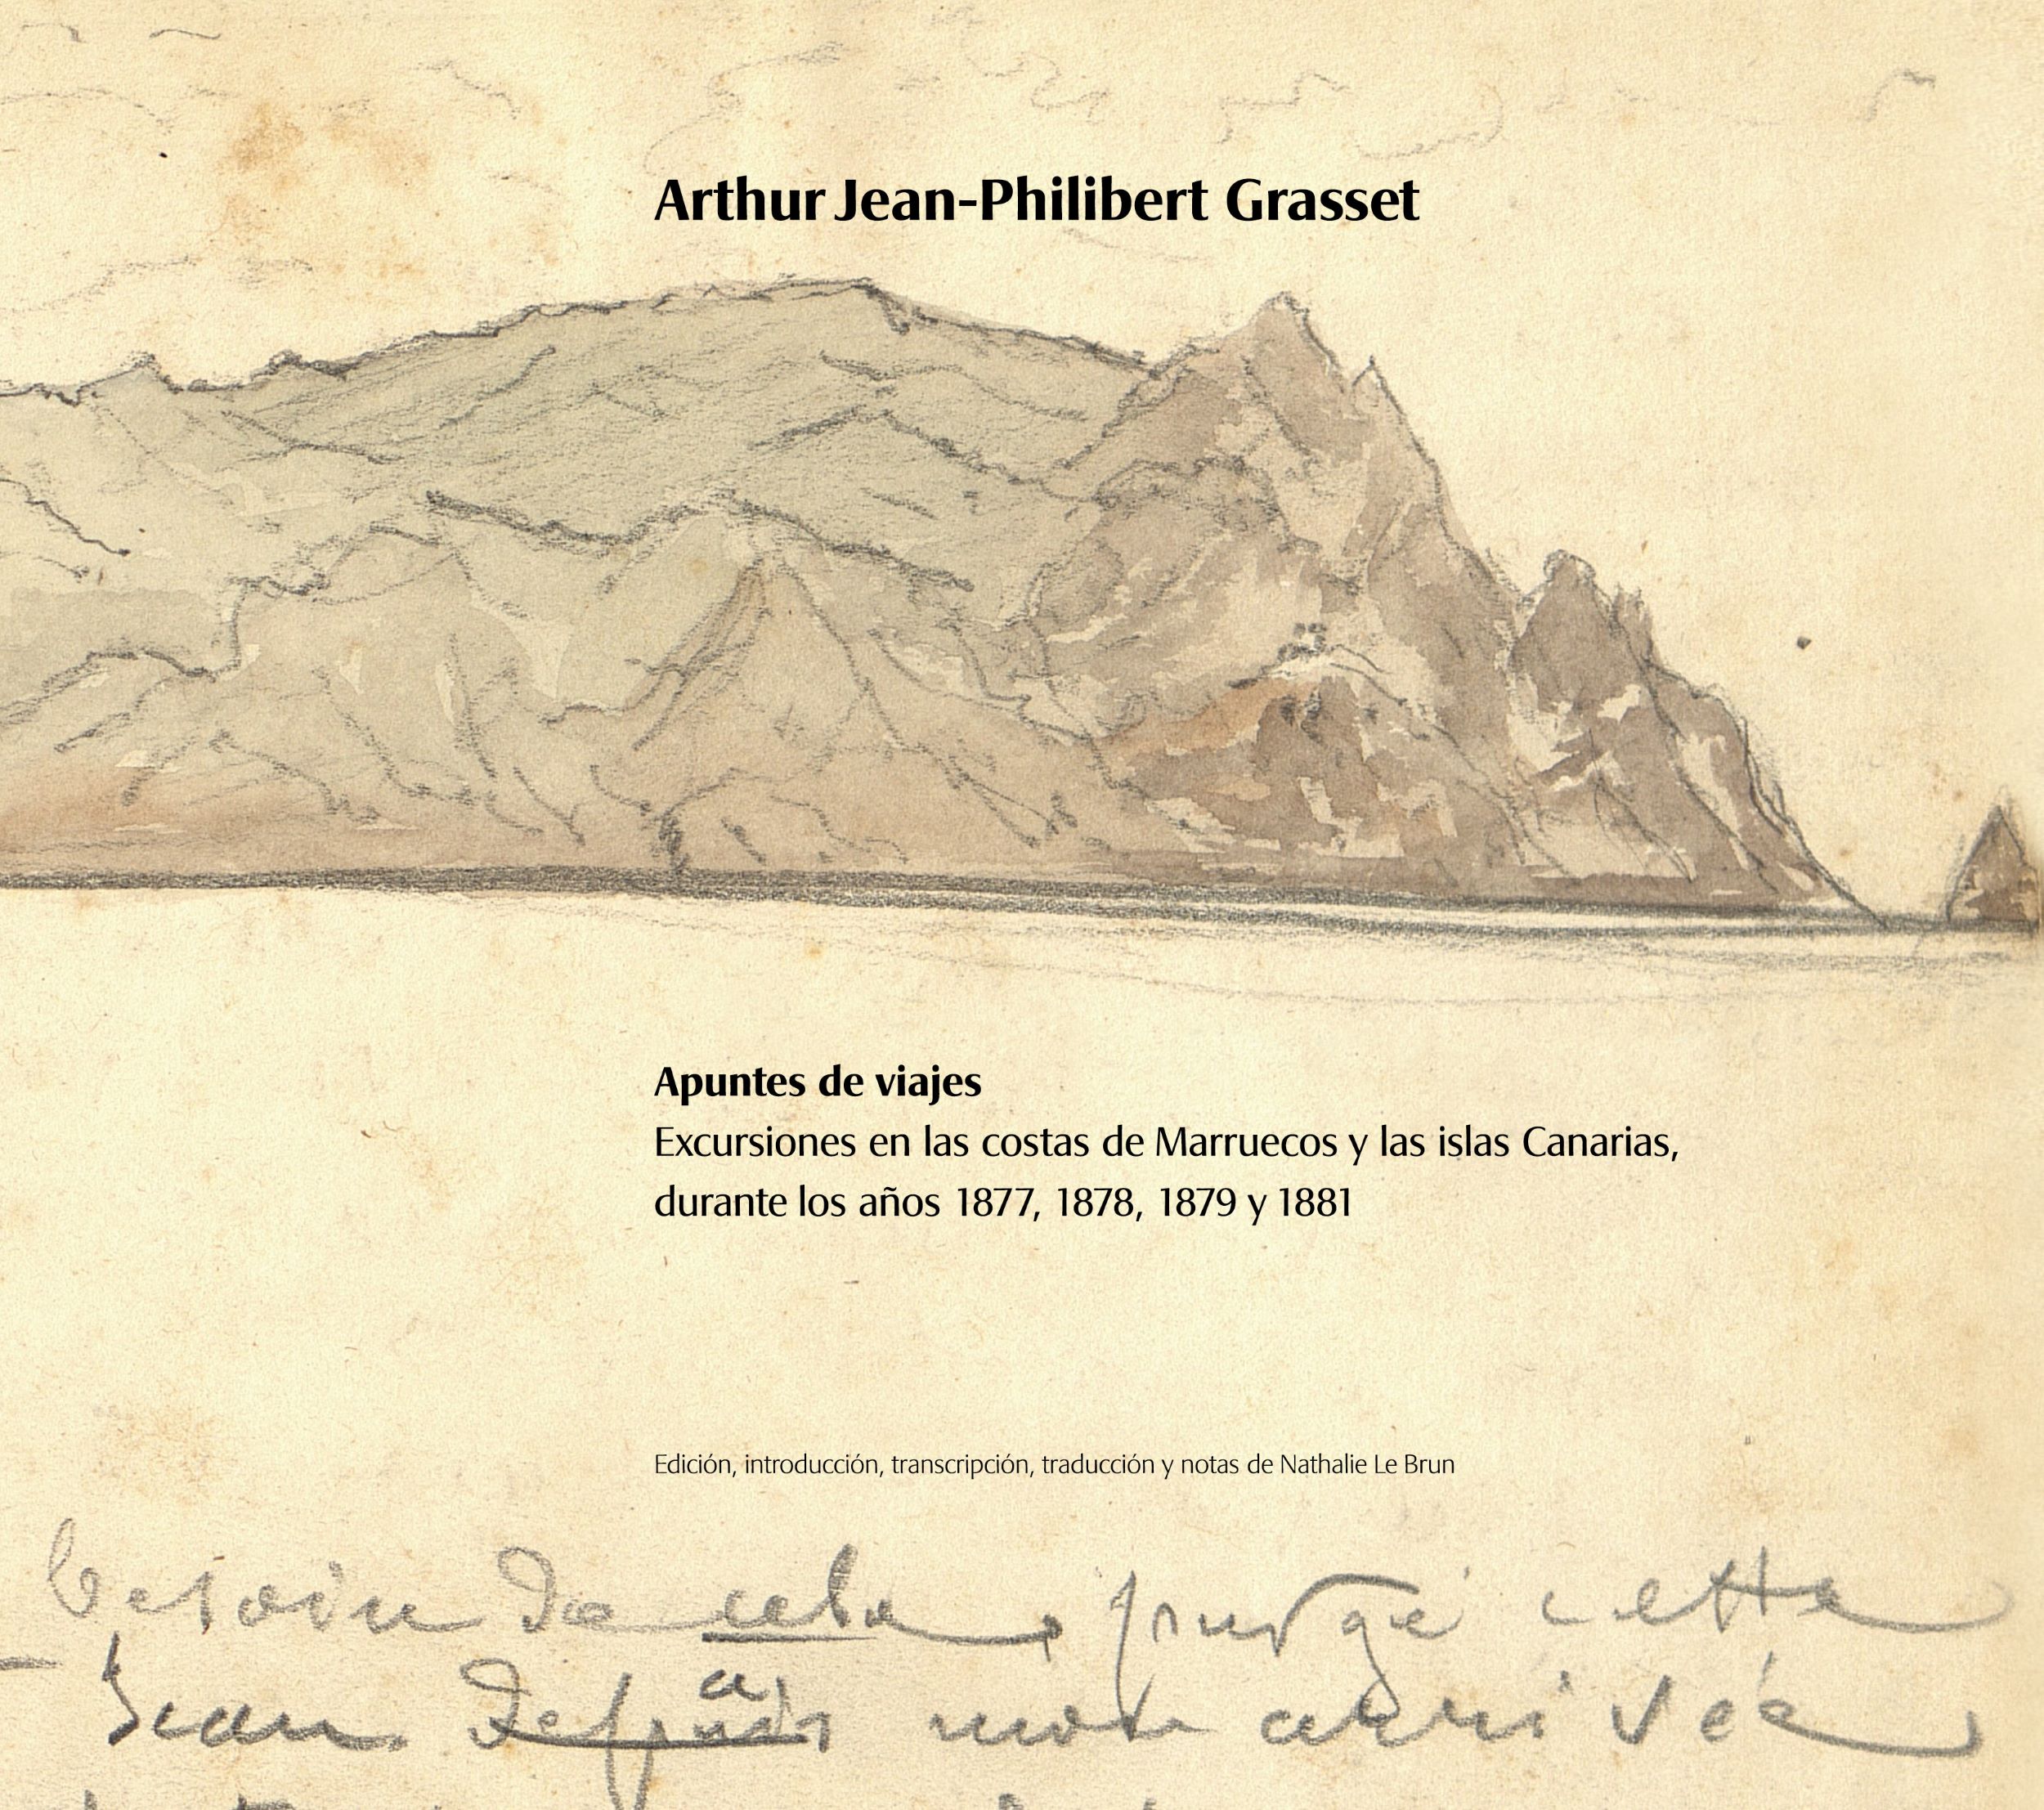 Arthur Jean-Philibert Grasset
Apuntes de viajes
Excursiones en las costas de Marruecos y las islas Canarias,
durante los años 1877, 1878, 1879 y 1881
Edición, introducción, transcripción, traducción y notas de Nathalie Le Brun
besoin de cela, purgé cette
mon arrivée